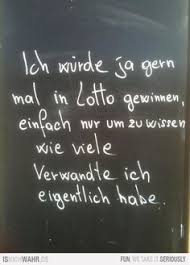 Ich würde ja gern
mal in Lotto gewinnen,
einfach nur um zu wissen
wie viele
Verwandte ich
eigentlich habe.
ISNICHWAHR.DE
FUN. WE TAKE IT SERIOUSLY